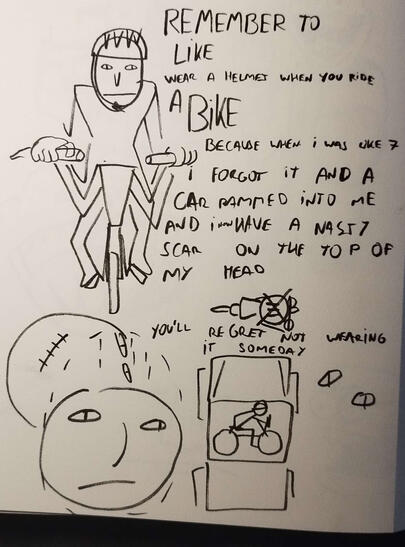 REMEMBER TO
LIKE
WEAR A HELMET WHEN YOU RIDE
A BIKE
BECAUSE WHEN i WAS LIKE 7
i FORGOT IT AND A
CAR RAMMED INTO ME
AND i NOW HAVE A NASTY
SCAR ON THE TOP OF
MY HEAD
YOU'LL REGRET NOT WEARING
IT SOMEDAY